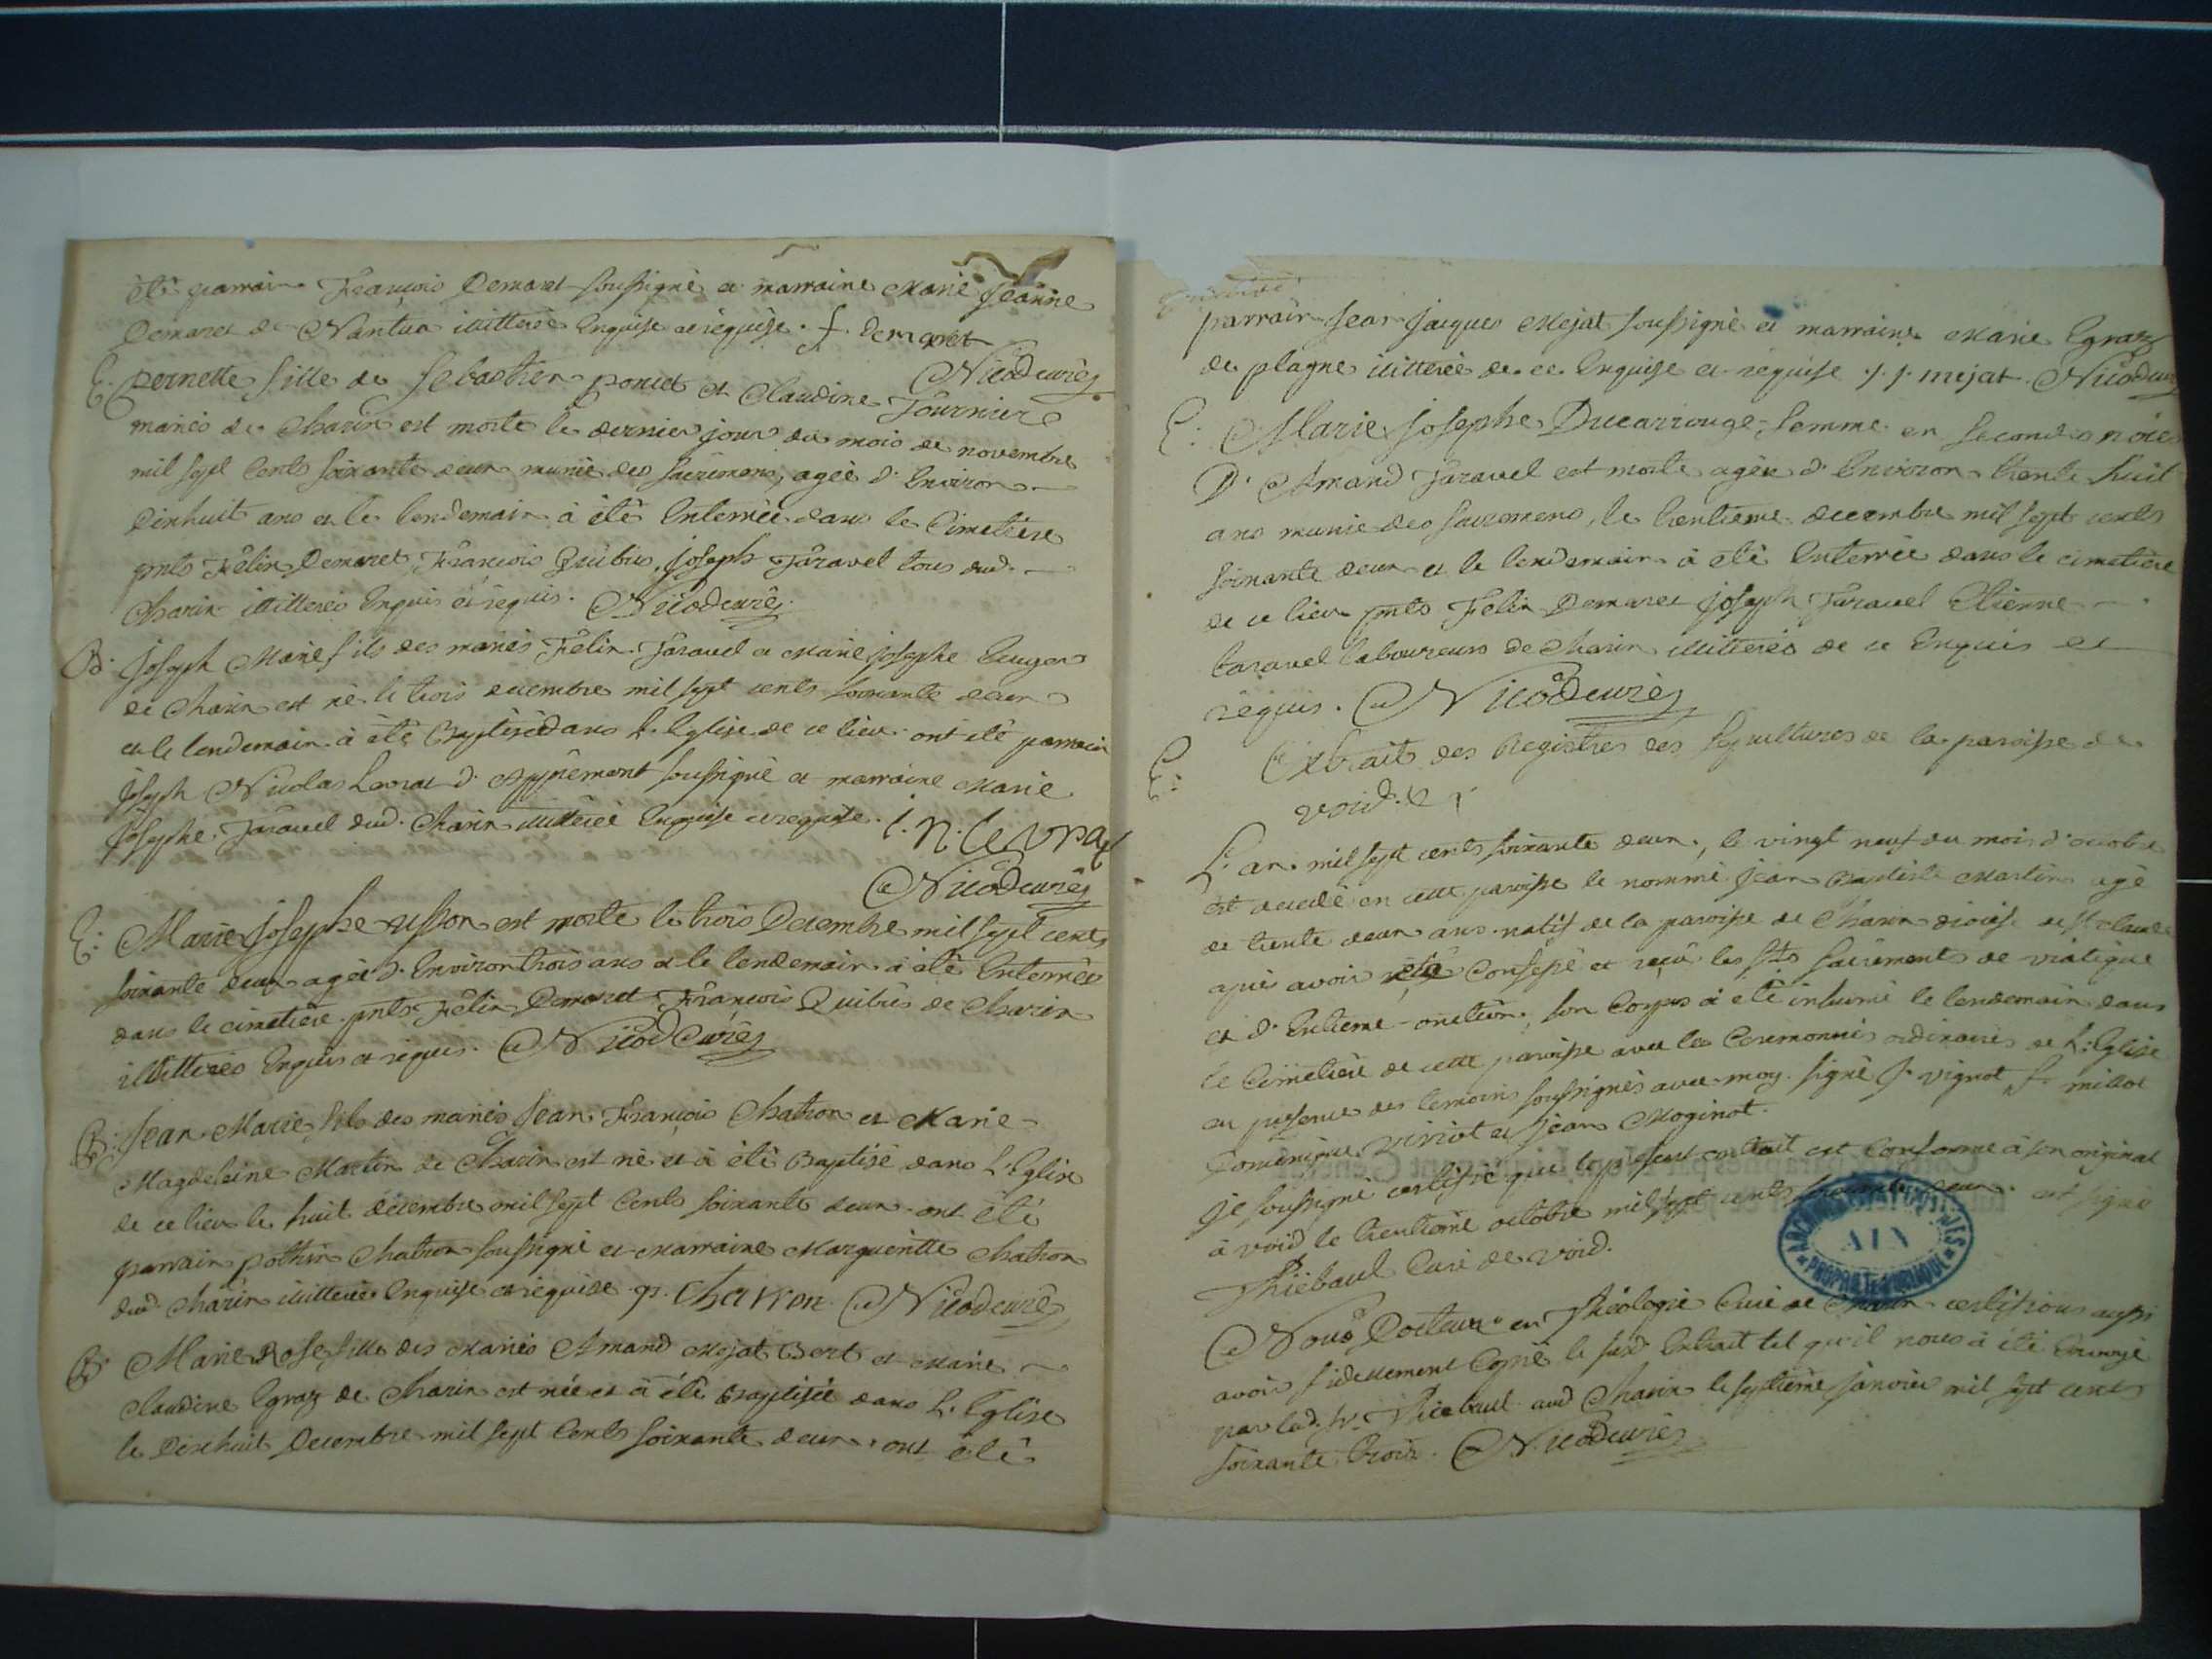 été parrain François Demaret soussigné et marraine Marie Jeanne
Demaret de Nantua illitterée Enquise et requise. f. demaret
Nicod curé
E. pernette fille de Sebastien poncet et Claudine Tournier
mariés de Charix est morte le dernier jour du mois de novembre
mil sept Cents soixante deux munie des sacremens, agée d'Environ
Dixhuit ans et le lendemain à été Enterrée dans le Cimetière
pnts Félix Demaret, François Quibus, joseph Taravel tous dud.
Charix illitterés Enquis et requis. Nicod curé
B. joseph Marie fils des mariés Felix Taravel et Marie josephe
de Charix est né le trois decembre mil sept cents soixante deux
et le lendemain à été Baptisé dans l'Eglise de ce lieu ont été parrain
joseph Nicolas Levrat d'Appremont soussigné et marraine Marie
josephe Taravel dud. Charix illitterée Enquise et requise. j. n. levrat
Nicod curé
E: Marie josephe Usson est morte le trois Decembre mil sept cents
soixante deux agée d'Environ trois ans et le lendemain à été Enterrée
dans le cimetière pnts Felix Demaret François Quibus de Charix
illitterés Enquis et requis. Nicod Curé
B: Jean Marie fils des mariés Jean François Chatron et Marie
Magdeleine Martin de Charix est né et à été Baptisé dans L'Eglise
de ce lieu le huit décembre mil sept Cents soixante deux ont été
parrain pothin Chatron soussigné et Marraine Margueritte Chatron
dud. Charix illitterée Enquise et requise p. Chatron Nicod curé
B. Marie Rose fille des Mariés Amand Mejat Bert et Marie
Claudine Egraz de Charix est née et à été Baptisée dans L'Eglise
le Dixhuit Decembre mil sept Cents soixante deux ont été
parrain Jean Jacques Mejat soussigné et marraine Marie Egraz
de plagne illitterée de ce Enquise et requise j. j. mejat Nicod curé
E: Marie Josephe Ducarrouge femme en seconde noces
D'Amand Taravel est morte agée d'Environ trente huit
ans munie des sacremens, le trentieme decembre mil sept cents
soixante deux et le lendemain à été Enterrée dans le cimetière
de ce lieu pnts Felix Demaret joseph Taravel Etienne
taravel laboureurs de Charix illitterés de ce Enquis et
réquis. Nicod curé
E: Extrait des Registres des sepultures de la paroisse de
void.
L'an mil sept cents soixante deux, le vingt neuf du mois d'octobre
est decedé en cette paroisse le nommé Jean Baptiste Martin agé
de trente deux ans natif de la paroisse de Charix diocèse de St claude
après avoir été Confessé et reçu les sts sacréments de viatique
et d'Extreme-onction, son Corps à été inhumé le lendemain dans
le Cimetière de cette paroisse avec les Ceremonies ordinaires de L'Eglise
en presence des temoins soussignés avec moy. signé J. vignot, f. millot
Dominique viriot et Jean Moginot.
je soussigné certifie que le present extrait est Conforme à son original
à void le trentième octobre mil sept cents soixante deux. est signé
Thiebaut Curé de void.
Nous Docteur en Théologie Curé de Charix certifions aussi
avoir fidellement Copié le susd. Extrait tel qu'il nous à été Envoyé
par led. sr. Thiebaut aud Charix le septième janvier mil sept cents
soixante trois. Nicod curé
ARCHIVES
AIN
PROPRIÉTÉ PUBLIQUE